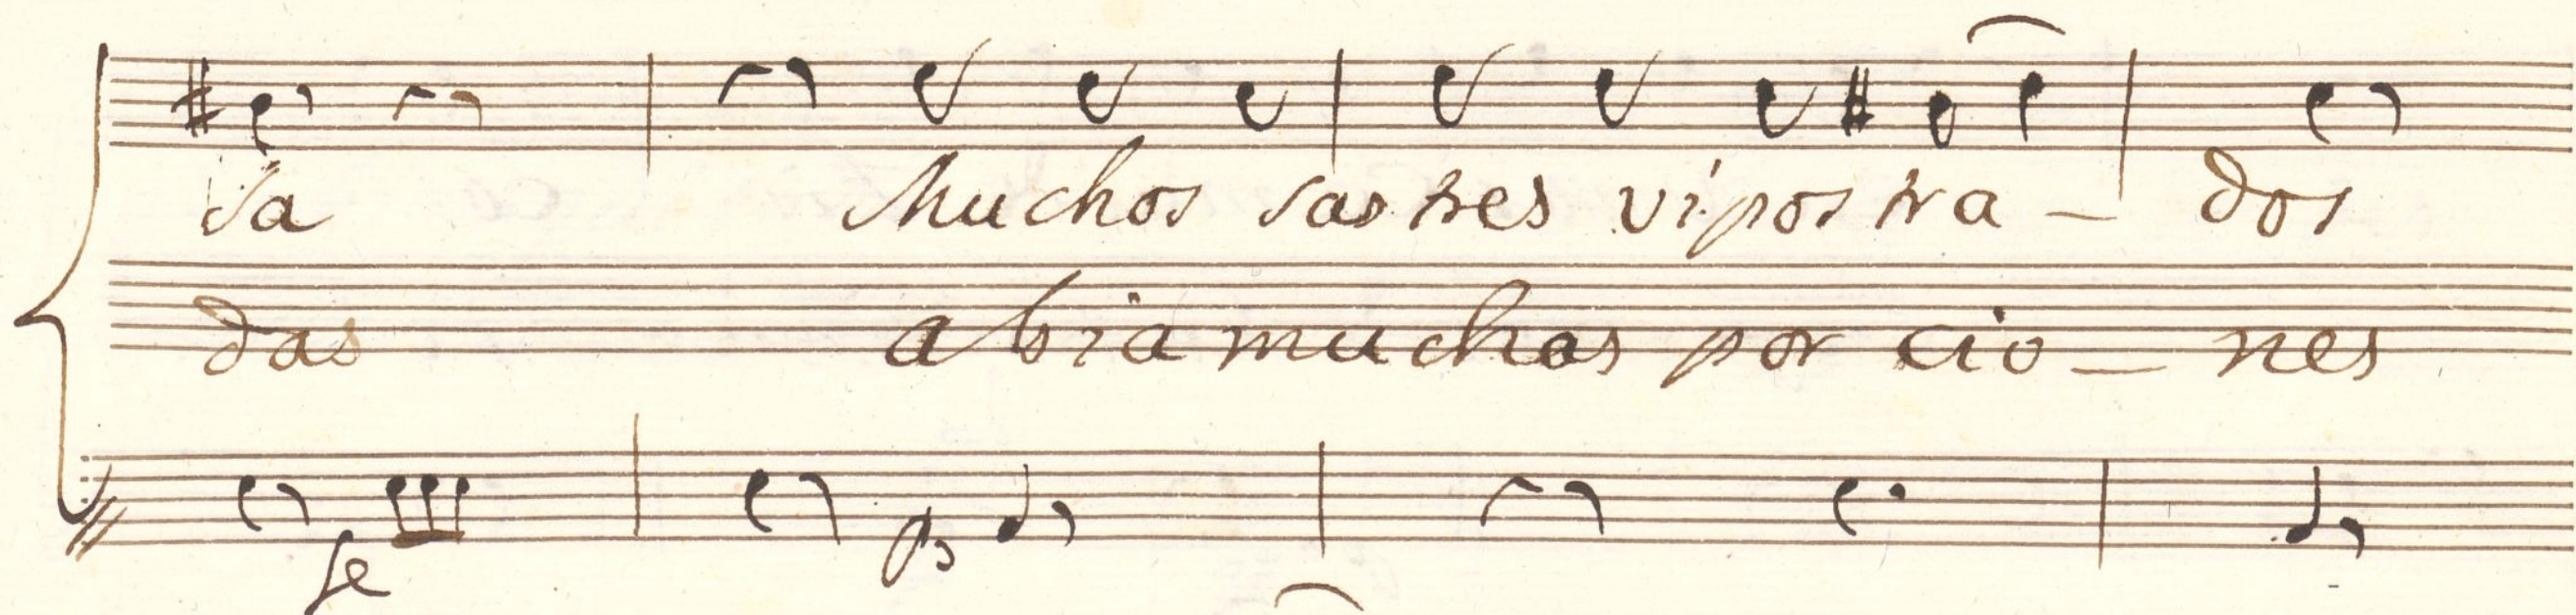 sa Muchos sastres vi postra - dos
das abia muchas porcio - nes
fe p